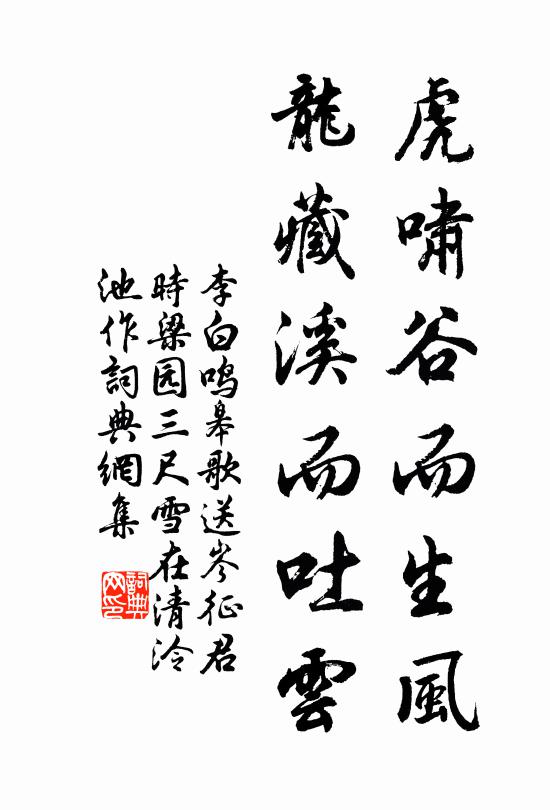 虎啸谷而生風
龍藏溪而吐雲
李白鸣皋歌送岑征君
時梁园三尺雪在清泠
池作詞典網集
詞典网印